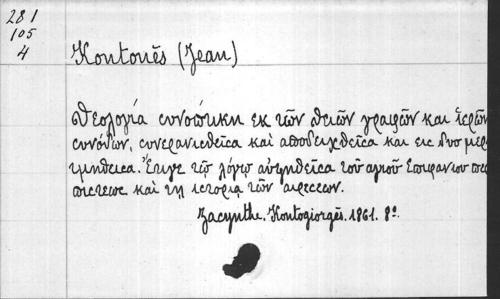 281
105
4
Kontonēs (Jean)
Θεολογία συνοπτικη εκ τῶν θειῶν γραφῶν και ἱερῶν
συνόδων, συνερανισθεῖσα καὶ αποδειχθεῖσα και εις δυο μερη
τμηθεισα. Ἐτι γε τῷ λόγῳ αυξηθεῖσα τοῦ αγιου Επιφανιου περι
πιστεως καὶ τῃ ιστοριᾳ τῶν αιρεσεων.
Zacynthe. Kontogiorgēs. 1861. 8º.